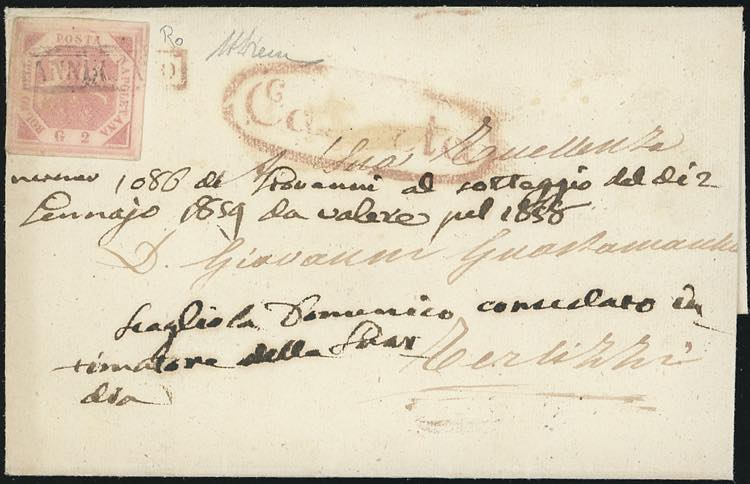 POSTA NAPOLETANA
BOLLO DELLA
G 2
ANNULLATO
Ro
A Sua Eccellenza
numero 1086 di Giovanni al sorteggio del dì 2
Gennajo 1859 da valere pel 1858
D. Giovanni
Scagliola Domenico comedato in
timatore della Guar
dia
Terlizzi